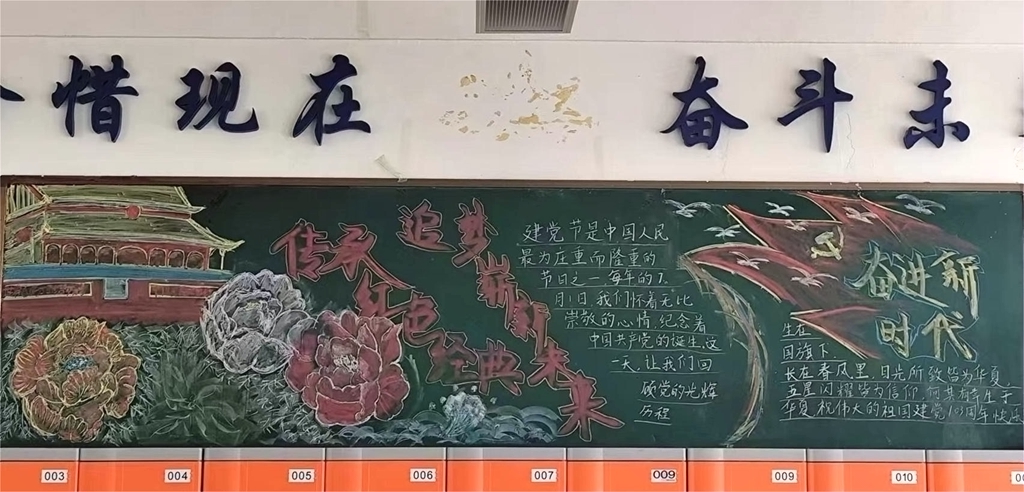 惜现在
奋斗未
传承
红色
经典
追梦
崭新未来
建党节是中国人民
最为庄重而隆重的
节日之一每年的7
月1日我们怀着无比
崇敬的心情纪念着
中国共产党的诞生这
一天让我们回
顾党的光辉
历程
奋进新
时代
生在
国旗下
长在春风里目光所致皆为华夏
五星闪耀皆为信仰
华夏祝伟大的祖国建党
003
004
005
006
007
009
009
010